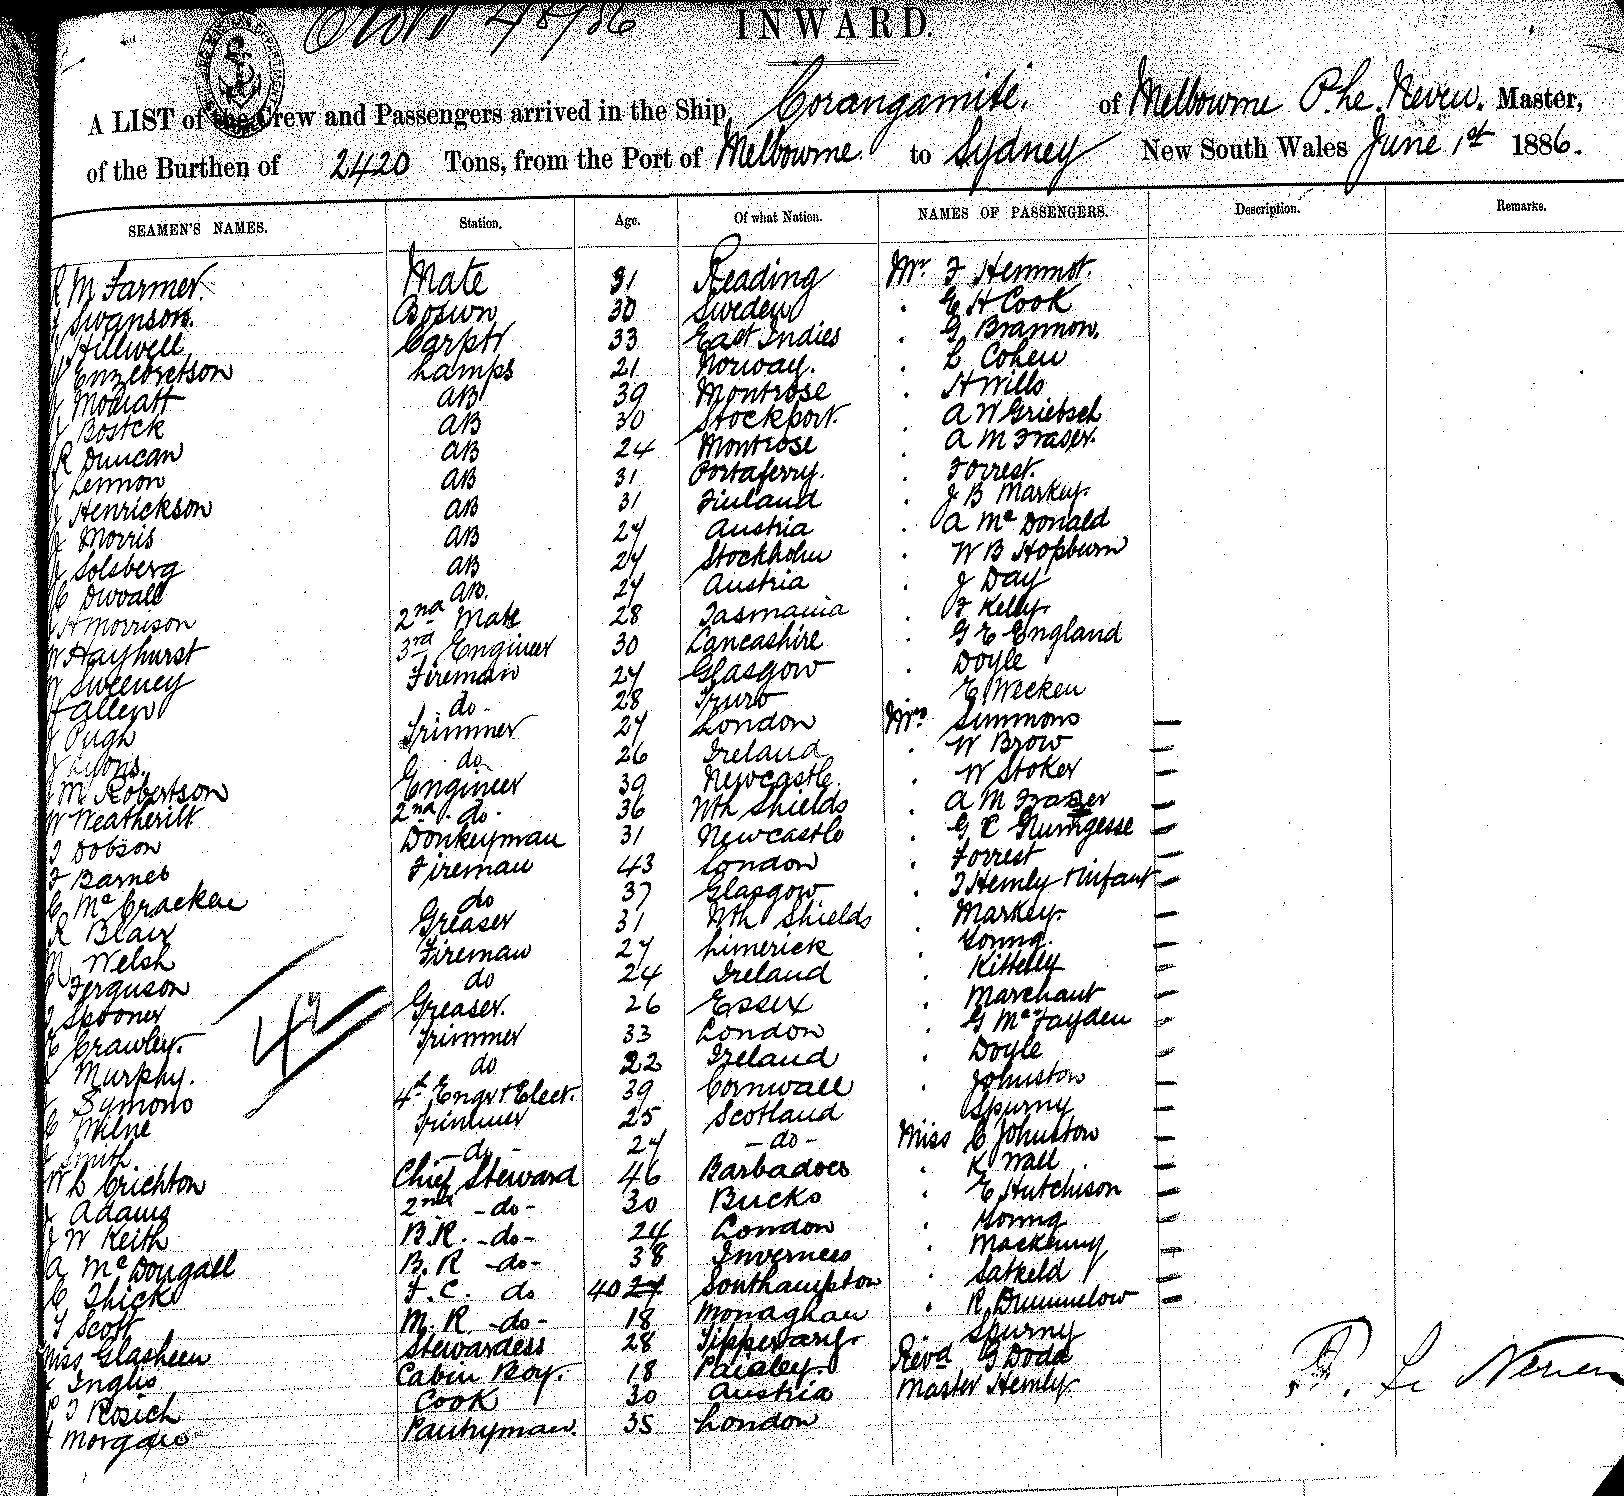 4/8/86
INWARD.
A LIST of the Crew and Passengers arrived in the Ship, Corangamite. of Melbourne P. Le Neveu. Master,
of the Burthen of 2420 Tons, from the Port of Melbourne to Sydney New South Wales June 1st 1886.
SEAMEN'S NAMES. Station. Age. Of what Nation. NAMES OF PASSENGERS. Description. Remarks.
M Farmer. Mate 31 Reading Mr F Hemmot.
Swanson. Bosun 30 Sweden . E H Cook
Hillwell Carptr 33 East Indies . G Brannon.
Lamps 21 Norway. . L Cohen
Mowatt AB 39 Montrose . H Wills
Bostck AB 30 Stockport. . A W Griebsch
R Duncan AB 24 Montrose . A M Fraser.
Lennon AB 31 Portaferry. . Forrest.
Henrickson AB 31 Finland . J B Markey.
Morris AB 27 Austria . A Mc Donald
Solsberg AB 27 Stockholm . W B Hopburn
C Duvall AB. 27 Austria . J Day
H Morrison 2nd Mate 28 Tasmania . F Kelly.
W Hayhurst 3rd Engineer 30 Lancashire . G E England
Sweeney Fireman 27 Glasgow . Doyle
Allen do- 28 Truro E Wecken
Pugh Trimmer 27 London Mrs Simmons —
Lyons. do 26 Ireland . W Brow —
M Robertson Engineer 39 Newcastle. . W Stoker —
W Weatherilt 2nd do. 36 Nth Shields . A M Frazer —
Dobson Donkeyman 31 Newcastle . G —
Barnes Fireman 43 London . Forrest —
C Mc Cracken do 37 Glasgow . Hemly & infant —
R Blair Greaser 31 Nth Shields . Markey. —
Welsh Fireman 27 Limerick . Young. —
Ferguson do 24 Ireland . Kitteley —
Spooner Greaser. 26 Essex . Marchant —
Crawley. Trimmer 33 London . G Mc Fayden —
Murphy. do 22 Ireland . Doyle —
Symons 4th Engr & Elect. 39 Cornwall . Johnston —
Milne Trimmer 25 Scotland Spurny —
Smith -do- 27 -do- Miss C Johnston —
W L Crichton Chief Steward 46 Barbadoes . K Wall —
Adams 2nd -do- 30 Bucks . E Hutchison —
J W Keith B.R. -do- 24 London . Young —
A Mc Dougall B.R -do- 38 Inverness . Mackenny —
C Thick F.C. do 40 27 Southampton . Satkeld —
Scott M.R -do- 18 Monaghan . R. Drummelow —
Miss Glasheen Stewardess 28 Tipperary. . Spurny
Inglis Cabin Boy. 18 Paisley. Revd G Dodd
Rosich Cook 30 Austria Master Hemly.
Morgan Pantryman. 35 London
P. Le Neveu